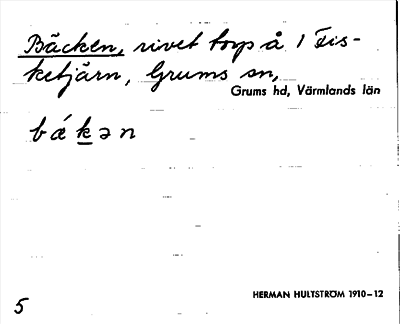 Bäcken, rivet torp å 1 Fis-
ketjärn, Grums sn,
Grums hd, Värmlands län
bä́kən
HERMAN HULTSTRÖM 1910–12
5